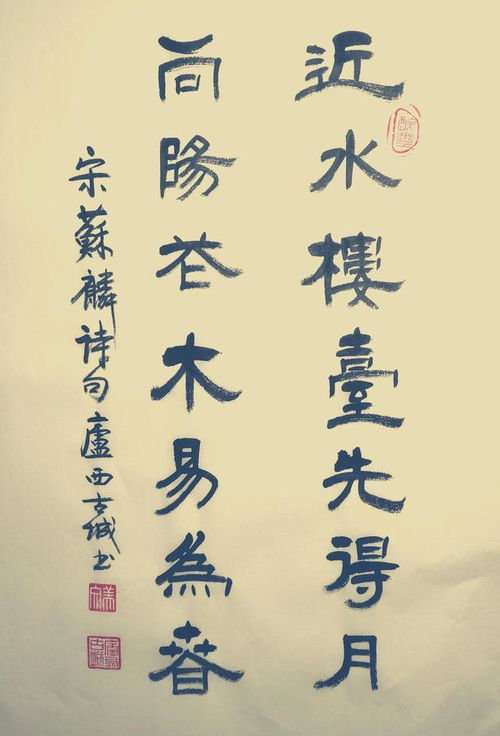 近水樓臺先得月
向陽花木易為春
宋蘇麟詩句廬西古城書